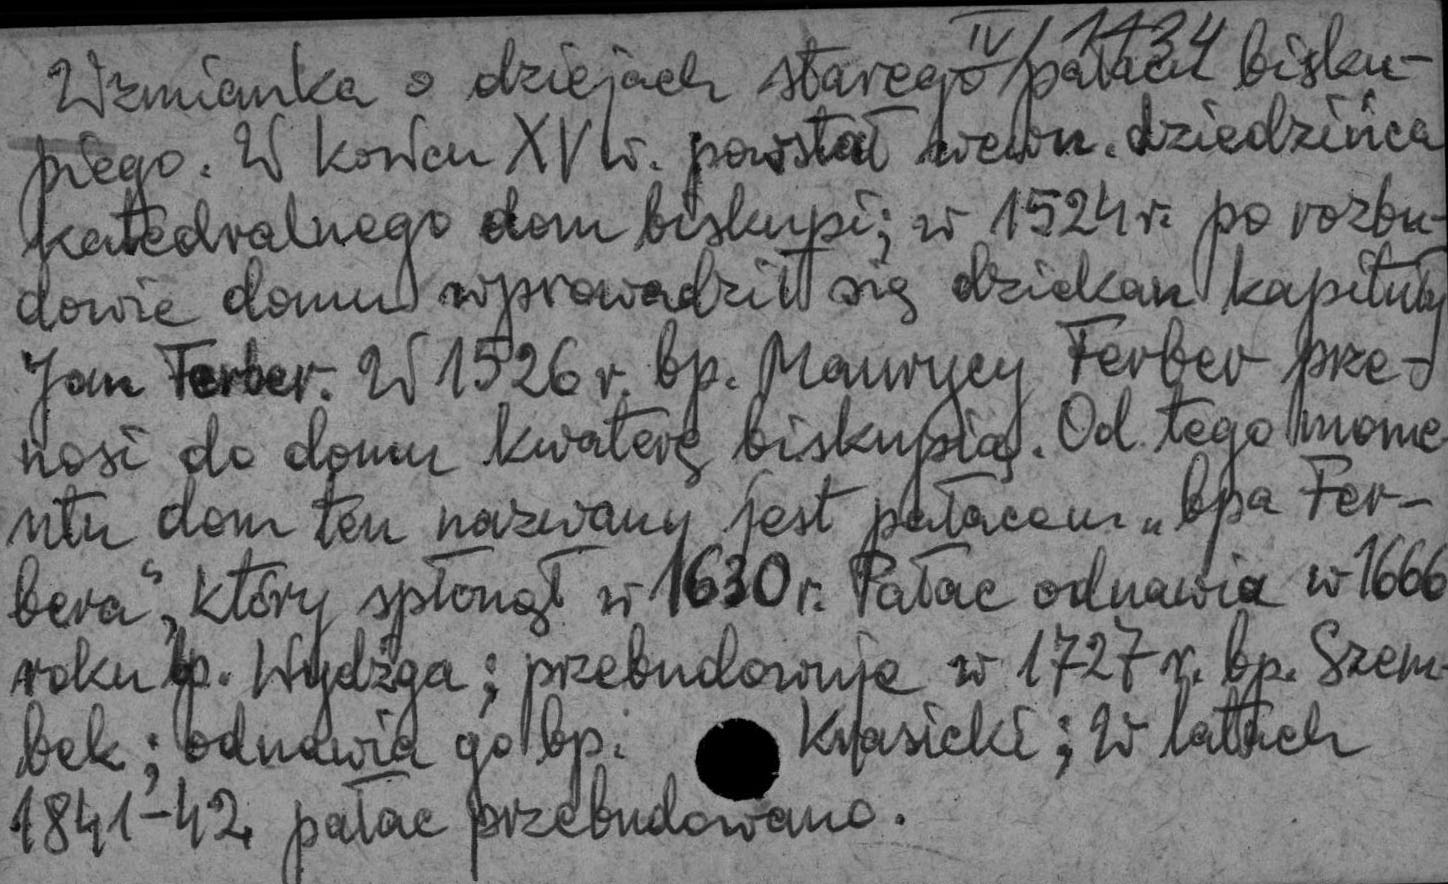 IV/1134
Wzmianka o dziejach starego pałacu bisku-
piego. W końcu XV w. powstał wewn. dziedzińca
katedralnego dom biskupi; w 1524 r. po rozbu-
dowie domu wprowadził się dziekan kapituły
Jan Ferber. W 1526 r. bp. Maurycy Ferber prze-
nosi do domu kwaterę biskupią. Od tego mome
ntu dom ten nazwany jest pałacem „bpa Fer-
bera", który spłonął w 1630 r. Pałac odnawia w 1666
roku bp. Wydżga; przebudowuje w 1727 r. bp. Szem
bek; odnawia go bp. Krasicki; W latach
1841-42 pałac przebudowano.